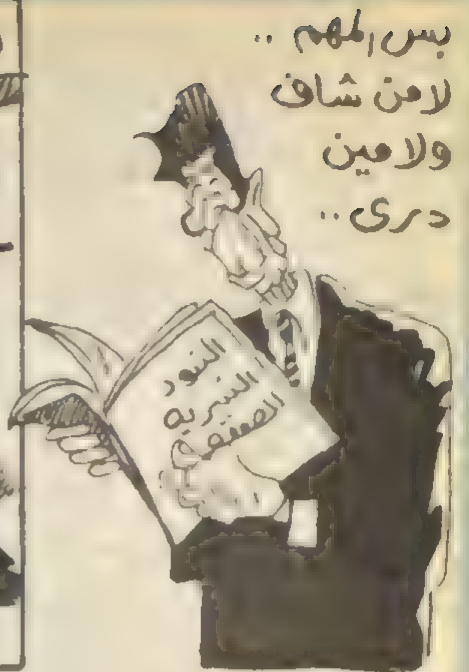 بس المهم ..
لا من شاف
ولا مين
درى ..
البنود
السريه